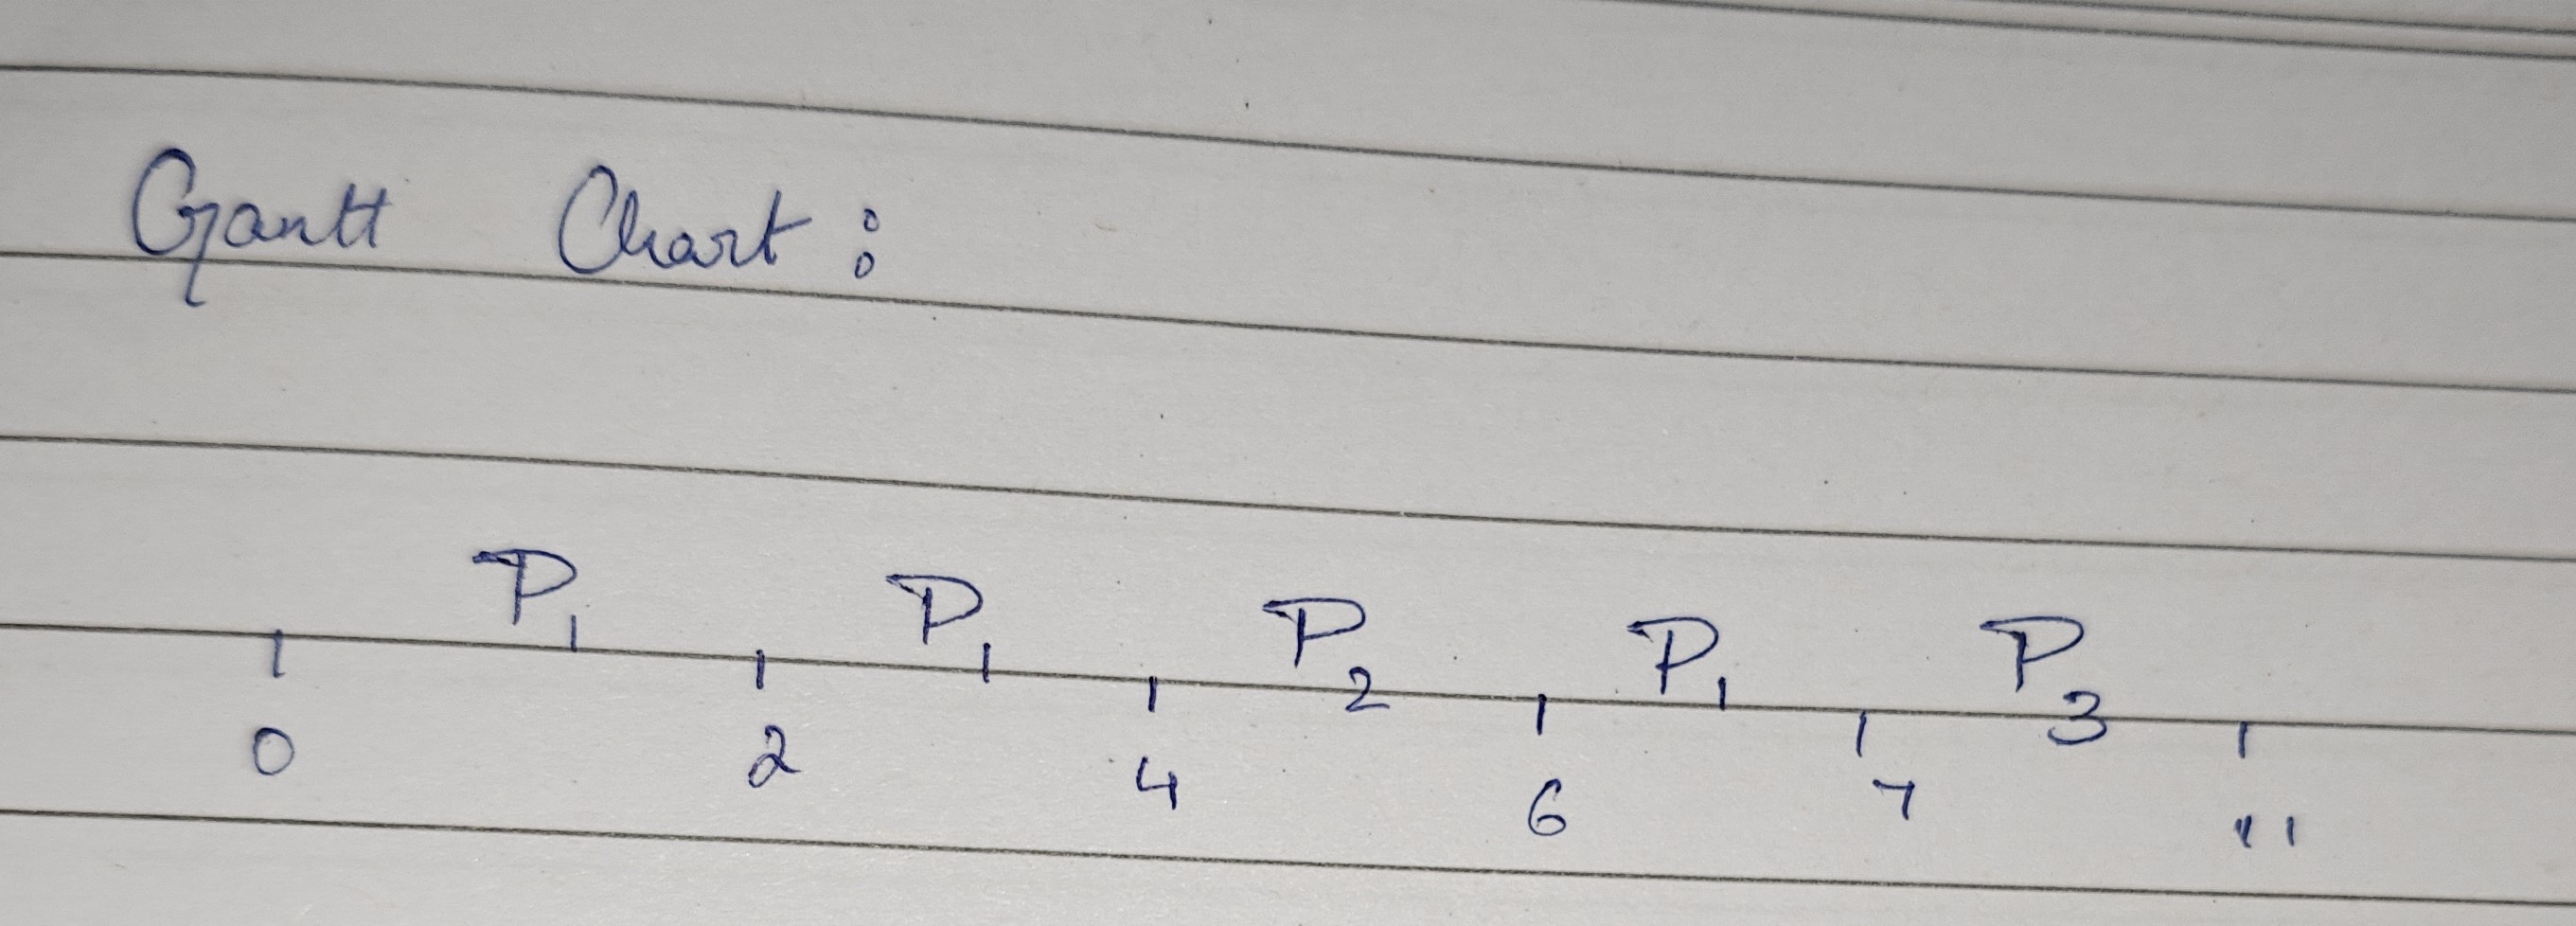 Gantt Chart:
P1 P1 P2 P1 P3
0 2 4 6 7 11